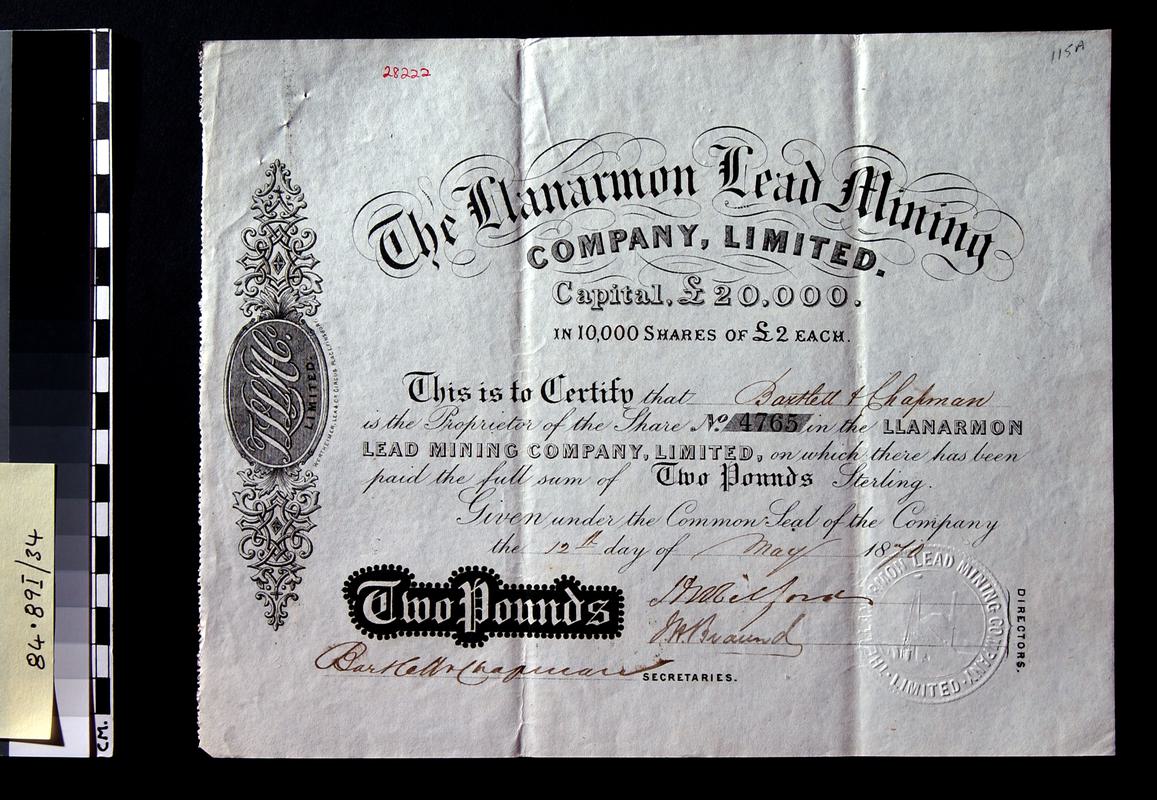 28222
115A
The Llanarmon Lead Mining
COMPANY, LIMITED.
Capital, £20,000.
IN 10,000 SHARES OF £2 EACH.
This is to Certify that Bartlett & Chapman
is the Proprietor of the Share No. 4765 in the LLANARMON
LEAD MINING COMPANY, LIMITED, on which there has been
paid the full sum of Two Pounds Sterling.
Given under the Common Seal of the Company
the 12th day of May 1870
Two Pounds
Bartlett & Chapman SECRETARIES.
DIRECTORS.
THE LLANARMON LEAD MINING COMPANY LIMITED
LIMITED.
84.89I/34
CM.